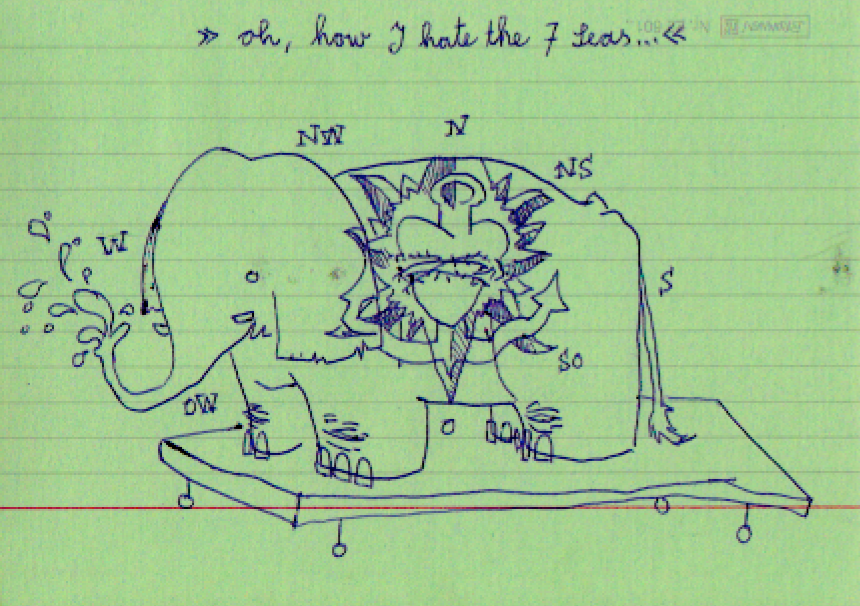 » oh, how I hate the 7 seas...«
N
NW
NS
W
S
SO
OW
O